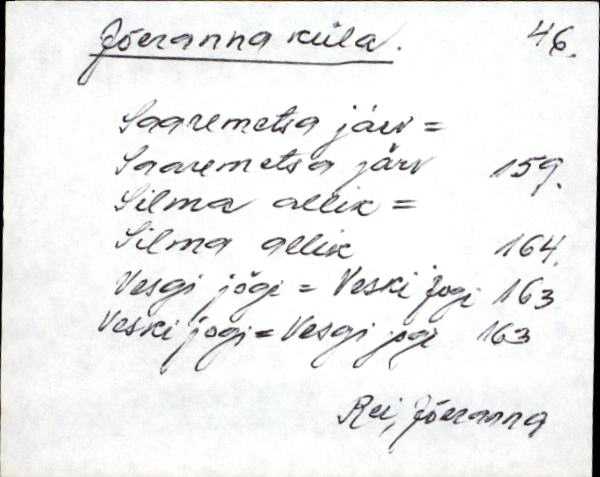 Jõeranna küla. 46.
Saaremetsa järv =
Saaremetsa järv 159.
Silma allik =
Silma allik 164.
Vesgi jõgi = Veski jogi 163
Veski jogi = Vesgi jogi 163
Rei, Jõeranna